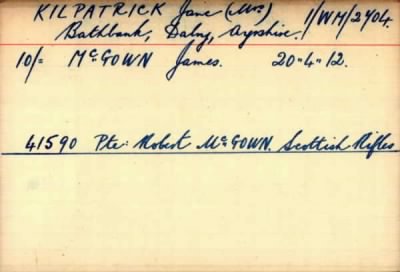 KILPATRICK Jane (Mrs) 1/WM/2704.
Bathbank, Dalry, Ayrshire.
10/= McGOWN James. 20"4"12.
41590 Pte: Robert McGOWN. Scottish Rifles